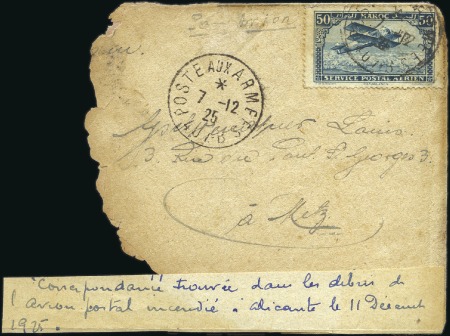 Par avion
50 MAROC 50
SERVICE POSTAL AÉRIEN
POSTE AUX ARMEES
*
7 -12
25
3. Rue du Pont St Georges 3.
à Metz
"Correspondance trouvée dans les débris de
l'avion postal incendié à alicante le 11 Décemb
1925.